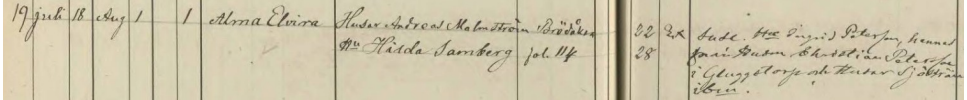 19 juli 18 Aug 1 1 Alma Elvira Husar Andreas Malmström Brödåkra 22
Hu Hilda Samberg fol. 114 28
Susc. Hu Ingrid Peterson, hennes
man Husm Christian Peterson
i Gluggstorp och Husar Sjöström
ibm.